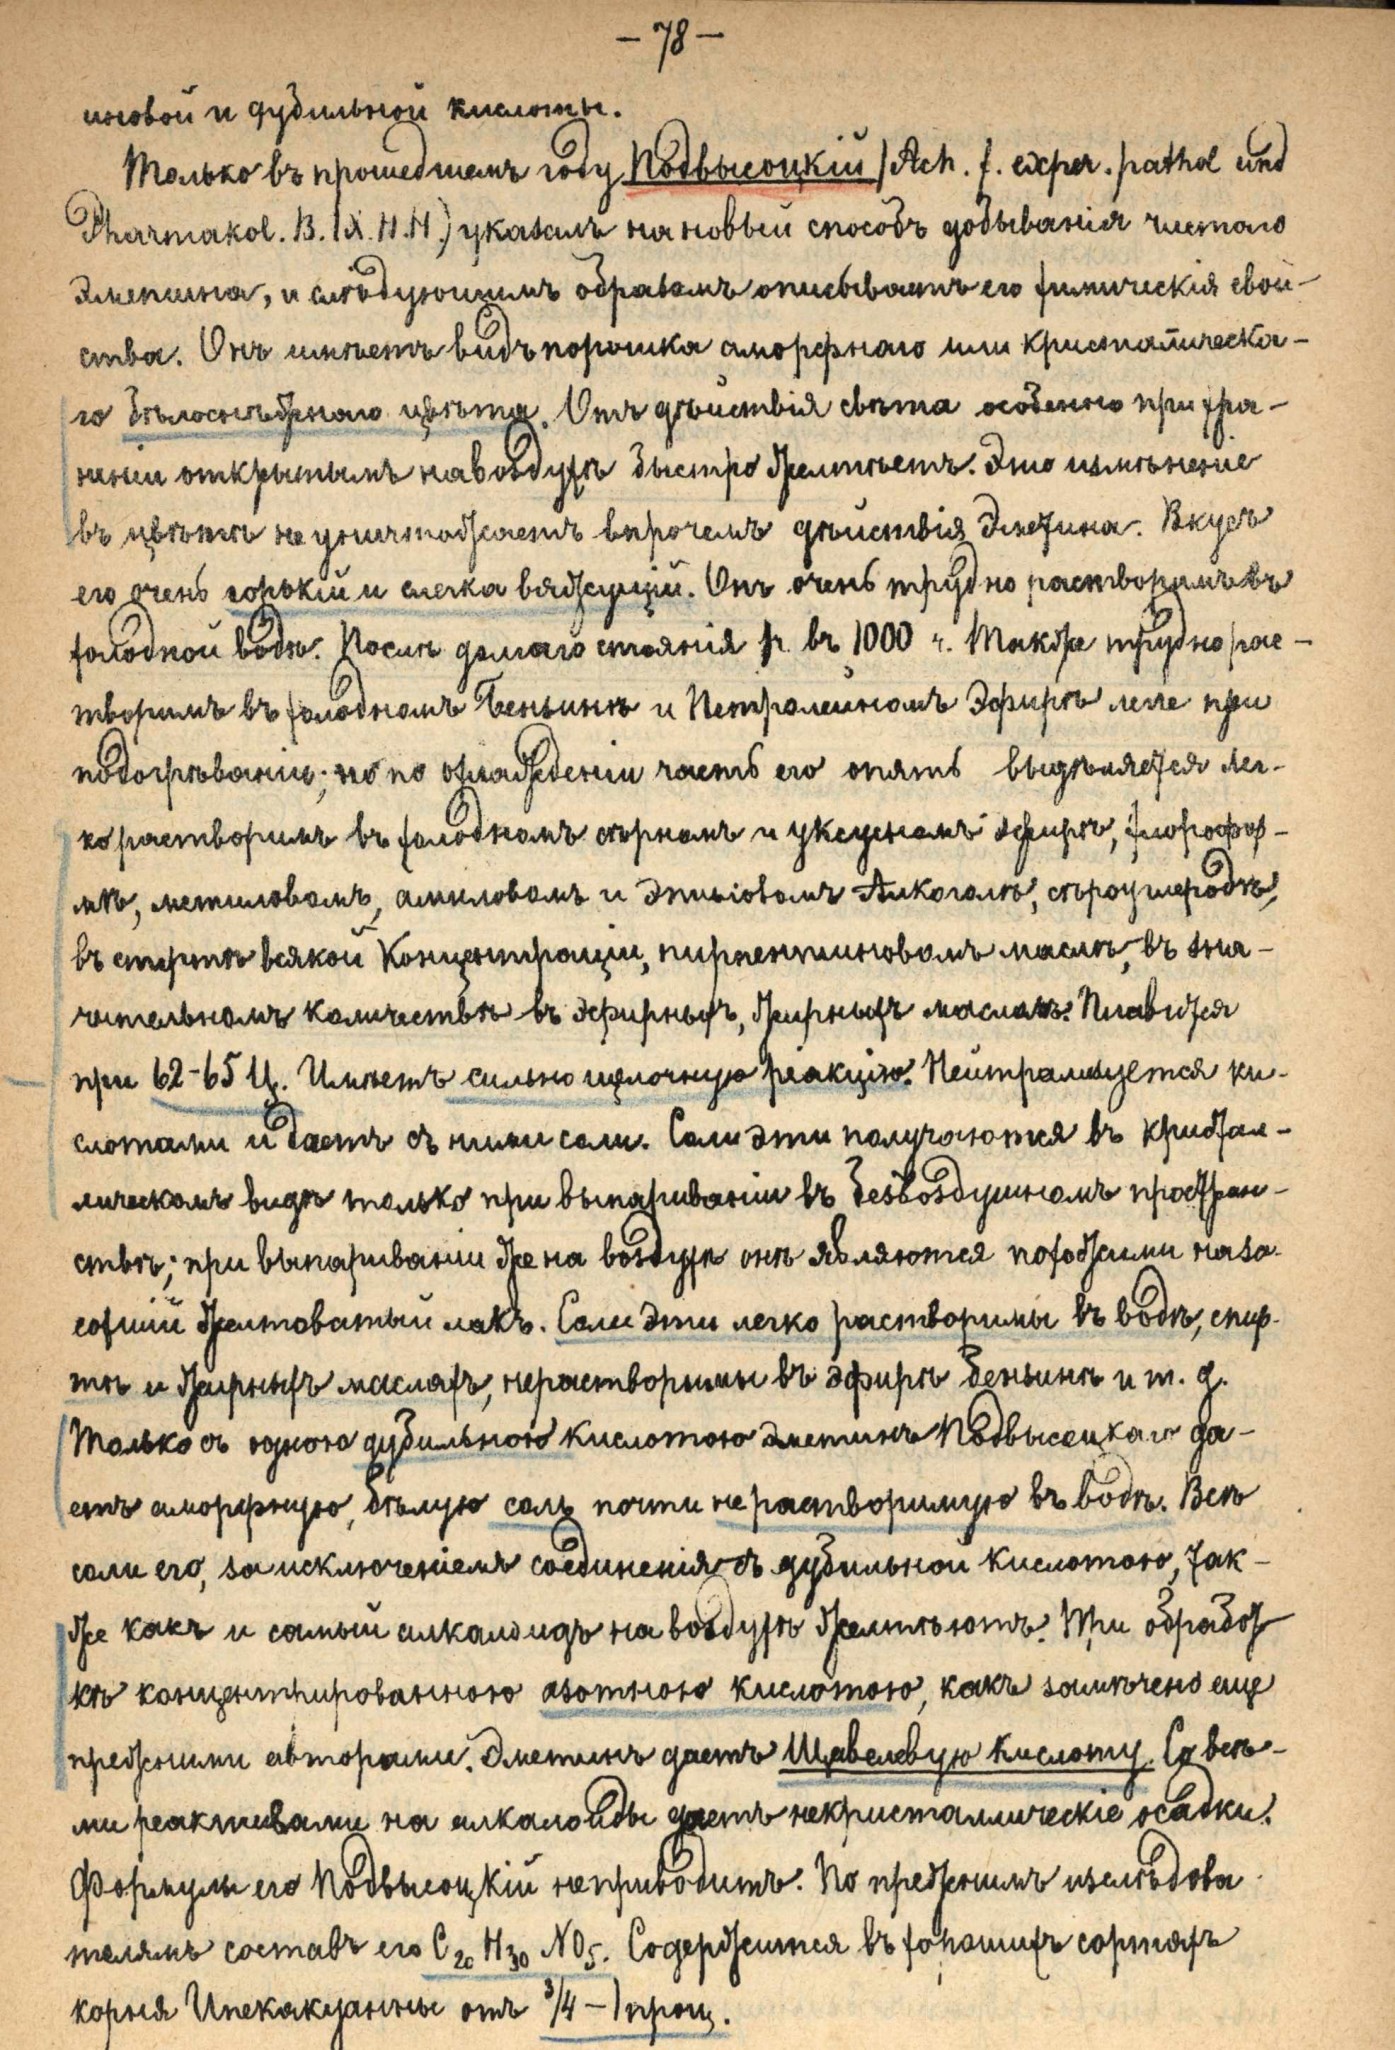 — 78 —
иновой и дубильной кислоты.
Только въ прошедшемъ году Подвысоцкій /Ach. f. exper. pathol und
Pharmakol. B. IX. H.H.) указалъ на новый способъ добыванія чистаго
Эметина, и слѣдующимъ образомъ описываетъ его химическія свой-
ства. Онъ имѣетъ видъ порошка аморфнаго или кристалическа-
го бѣлоснѣжнаго цвѣта. Отъ дѣйствія свѣта особенно при хра-
неніи открытымъ на воздухѣ быстро желтѣетъ. Это измѣненіе
въ цвѣтѣ не уничтожаетъ впрочемъ дѣйствія Эметина. Вкусъ
его очень горькій и слегка вяжущій. Онъ очень трудно растворимъ въ
холодной водѣ. Послѣ долгаго стоянія въ 1000 ч. Также трудно рас-
творимъ въ холодномъ Бензинѣ и Петролейномъ Эфирѣ легче при
подогрѣваніи; но по охлажденіи часть его опять выдѣляется Лег-
ко растворимъ въ холодномъ сѣрномъ и уксусномъ эфирѣ, хлорофор-
мѣ, метиловомъ, амиловомъ и Этиловомъ Алкоголѣ, сѣроуглеродѣ,
въ спиртѣ всякой Концентраціи, тирпентиновомъ маслѣ, въ зна-
чительномъ количествѣ въ эфирныхъ, жирныхъ маслахъ. Плавится
при 62-65 Ц. Имѣетъ сильно щелочную реакцію. Нейтрализуется ки-
слотами и даетъ съ ними соли. Соли эти получаются въ кристал-
лическомъ видѣ только при выпариваніи въ безвоздушномъ простран-
ствѣ; при выпариваніи же на воздухѣ онѣ являются похожими на за-
сохшій желтоватый лакъ. Соли эти легко растворимы въ водѣ, спир-
тѣ и жирныхъ маслахъ, нерастворимы въ эфирѣ бензинѣ и т. д.
Только съ одною дубильною кислотою эметинъ Подвысоцкаго да-
етъ аморфную, бѣлую соль почти нерастворимую въ водѣ. Всѣ
соли его, за исключеніемъ соединенія съ дубильной кислотою, так-
же какъ и самый алкалоидъ на воздухѣ желтѣютъ. При обработ
кѣ концентрированною азотною кислотою, какъ замѣчено еще
прежними авторами. Эметинъ даетъ Щавелевую кислоту. Со всѣ-
ми реактивами на алкалоиды даетъ некристаллическіе осадки.
Формулы его Подвысоцкій неприводитъ. По прежнимъ изслѣдова
телямъ составъ его C20 H30 NO5. Содержится въ хорошихъ сортахъ
корня Ипекакуанны отъ 3/4 — 1 проц.